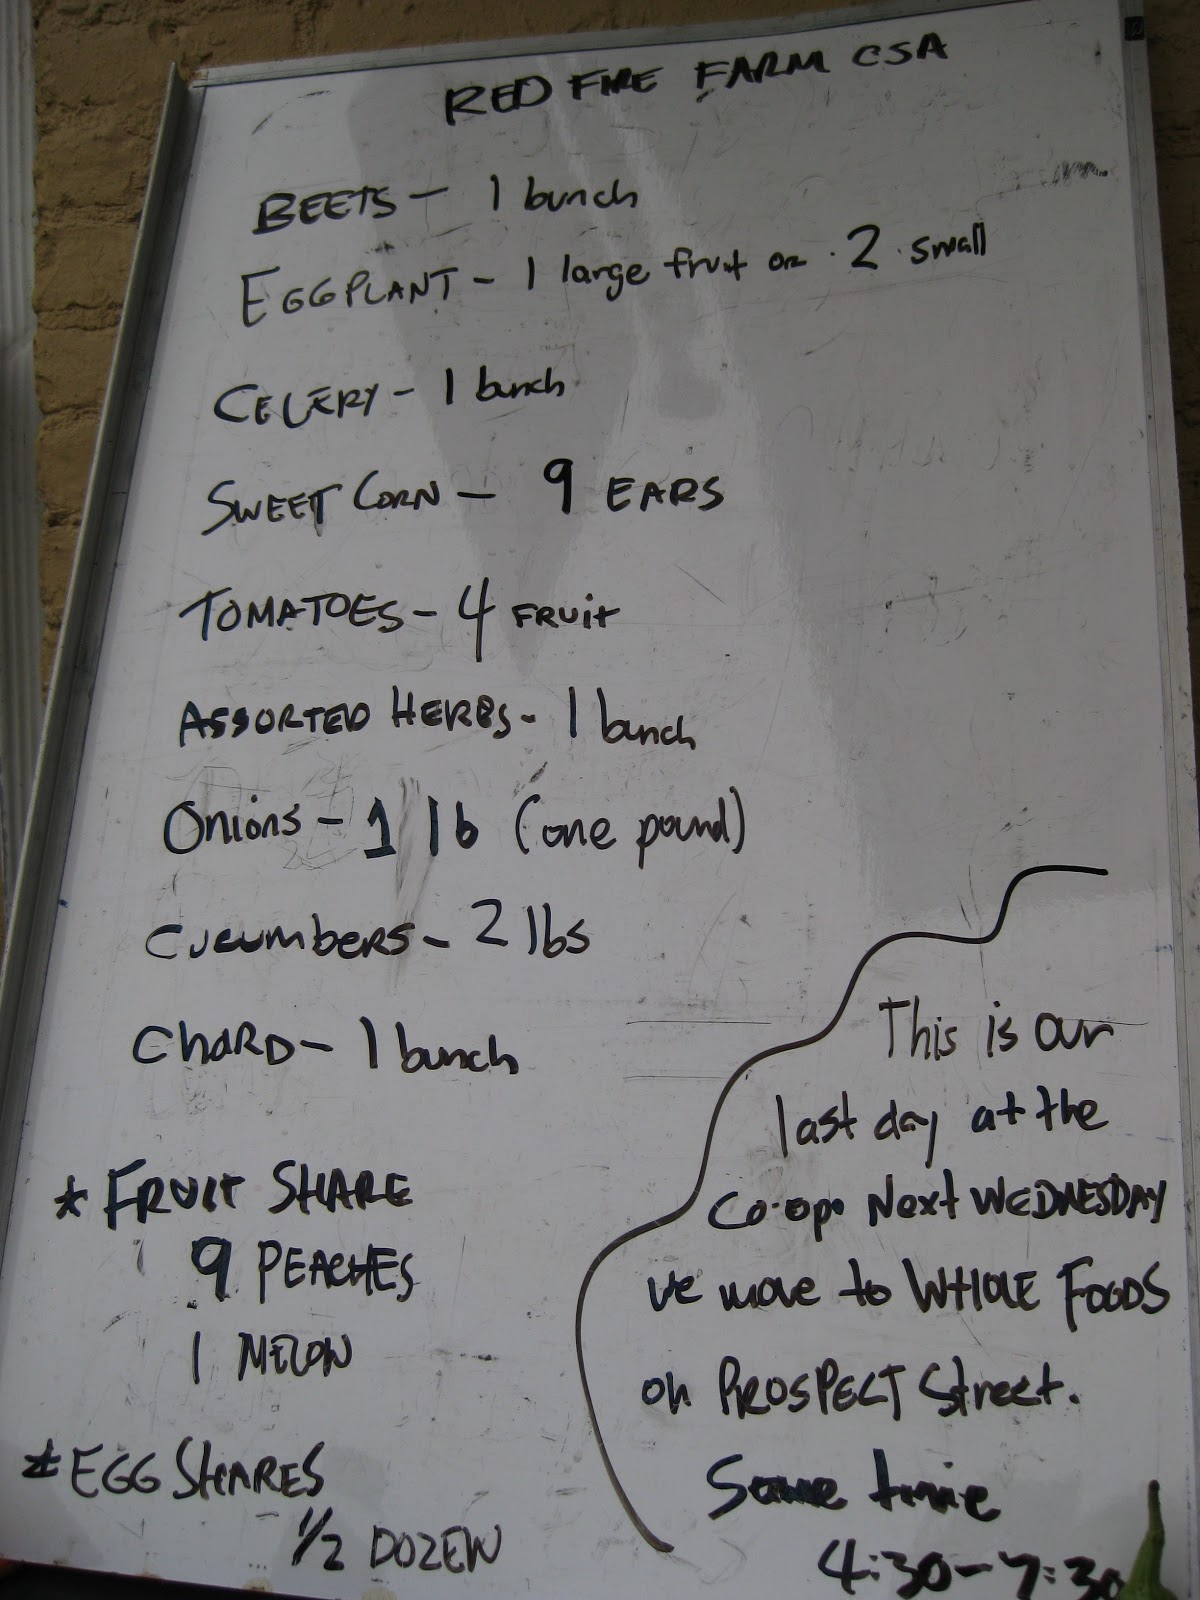 RED FIRE FARM CSA
BEETS - 1 bunch
EGGPLANT - 1 large fruit or 2 small
CELERY - 1 bunch
SWEET CORN - 9 EARS
TOMATOES - 4 FRUIT
ASSORTED HERBS - 1 bunch
Onions - 1 lb (one pound)
CUCUMBERS - 2 lbs
CHARD - 1 bunch
* FRUIT SHARE
9 PEACHES
1 MELON
* EGG SHARES
1/2 DOZEN
This is our
last day at the
Co-op. Next WEDNESDAY
we move to WHOLE FOODS
on PROSPECT Street.
Same time
4:30-7:30